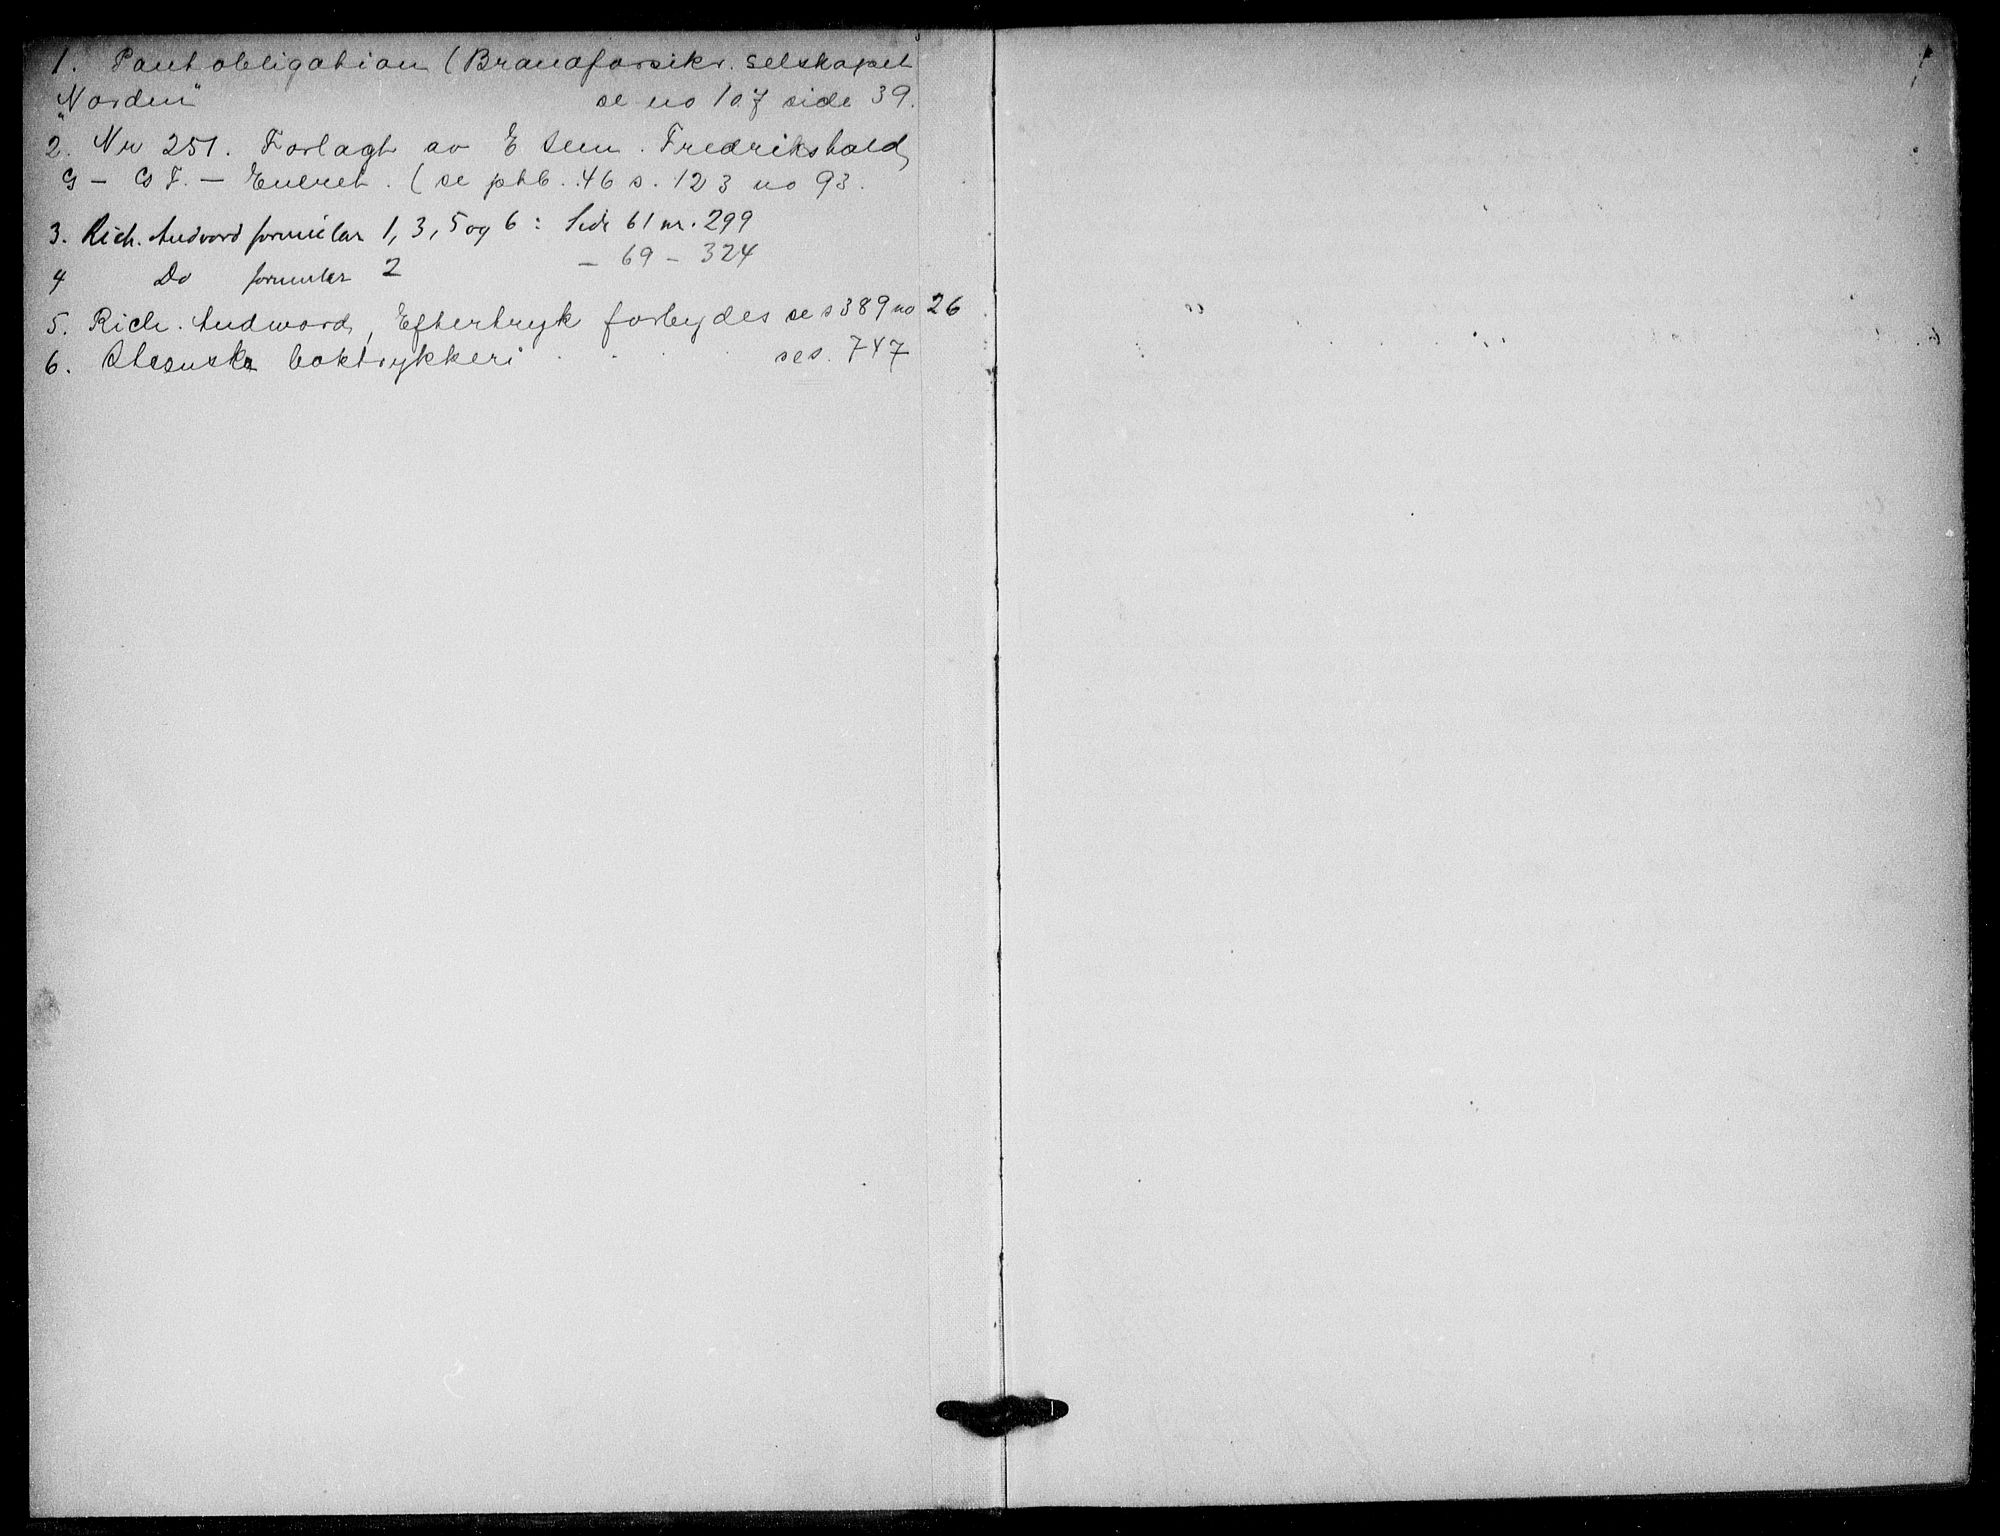 1. Pantobligation (Brandforsikr. selskapet
"Norden" se no 107 side 39.
2. Nr 251. Forlagt av E Sem. Fredrikshald,
G - G F. - Eneret. (se ptb. 46 s. 123 no 93.
3. Rich. Andvord formular 1, 3, 5 og 6: Side 61 nr. 299
4 Do formular 2 - 69 - 324
5. Rich. Andvord, Eftertryk forbydes se s 389 no 26
6. boktrykkeri . . . se s. 747